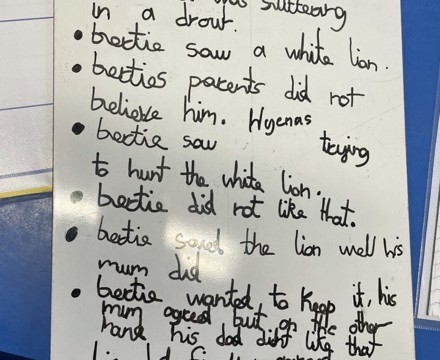 was suffering
in a drout.
• bertie saw a white lion.
• berties parents did not
believe him. Hyenas
• bertie saw trying
to hurt the white lion.
• bertie did not like that.
• bertie saved the lion well his
mum did
• bertie wanted to keep it, his
mum agreed but on the other
hand his dad didt like that